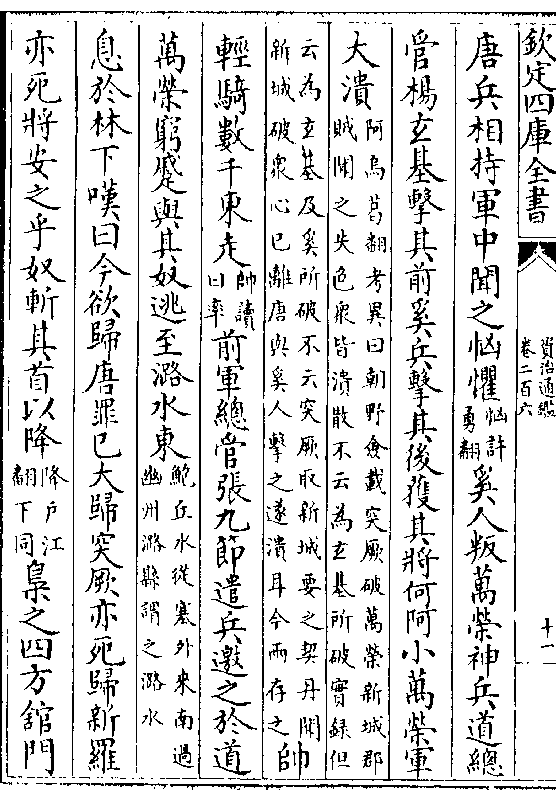 欽定四庫全書
資治通鑑
卷二百六
十一
唐兵相持軍中聞之恟懼恟許勇翻奚人叛萬榮神兵道總
管楊玄基擊其前奚兵擊其後獲其將何阿小萬榮軍
大潰阿烏葛翻考異曰朝野僉載突厥破萬榮新城郡
賊聞之失色衆皆潰散不云為玄基所破實録但
云為玄基及奚所破不云突厥取新城要之契丹聞
新城破衆心已離唐與奚人擊之遂潰耳今兩存之帥
輕騎數千東走帥讀曰率前軍總管張九節遣兵邀之於道
萬榮窮蹙與其奴逃至潞水東鮑丘水從塞外來南過
幽州潞縣謂之潞水
息於林下嘆曰今欲歸唐罪已大歸突厥亦死歸新羅
亦死將安之乎奴斬其首以降降户江翻下同梟之四方館門